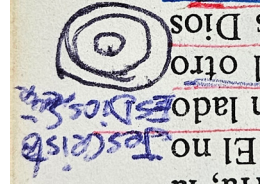 El no
Jescristo
n lado
ES Dios
l otro
s Dios